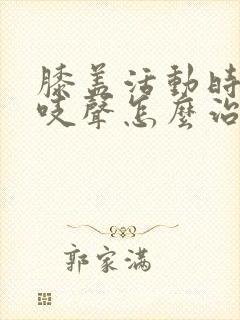 膝盖活動時
吱聲怎麼治
郭家滿